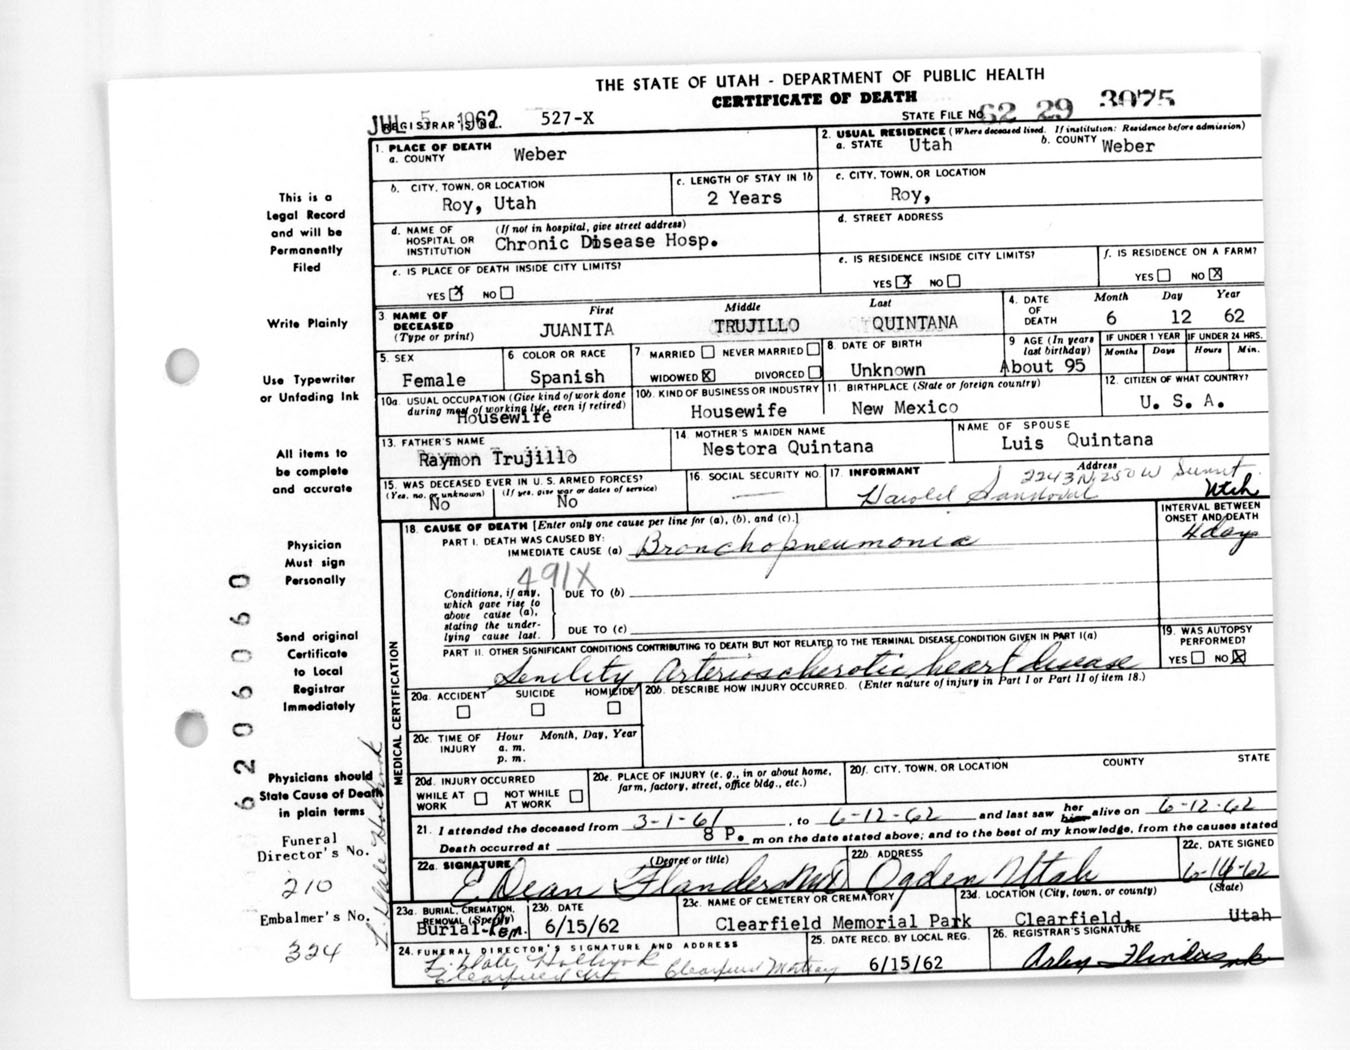 THE STATE OF UTAH - DEPARTMENT OF PUBLIC HEALTH
CERTIFICATE OF DEATH
JUL 5 1962 REGISTRAR'S NO. 527-X STATE FILE NO. 62 29 3075
1. PLACE OF DEATH
a. COUNTY Weber
2. USUAL RESIDENCE (Where deceased lived. If institution: Residence before admission)
a. STATE Utah b. COUNTY Weber
b. CITY, TOWN, OR LOCATION Roy, Utah
c. LENGTH OF STAY IN 1b 2 Years
c. CITY, TOWN, OR LOCATION Roy,
d. NAME OF HOSPITAL OR INSTITUTION (If not in hospital, give street address) Chronic Disease Hosp.
d. STREET ADDRESS
e. IS PLACE OF DEATH INSIDE CITY LIMITS? YES X NO
e. IS RESIDENCE INSIDE CITY LIMITS? YES X NO
f. IS RESIDENCE ON A FARM? YES NO X
3 NAME OF DECEASED (Type or print) First JUANITA Middle TRUJILLO Last QUINTANA
4. DATE OF DEATH Month 6 Day 12 Year 62
5. SEX Female
6 COLOR OR RACE Spanish
7 MARRIED NEVER MARRIED WIDOWED X DIVORCED
8. DATE OF BIRTH Unknown
9 AGE (In years last birthday) About 95
IF UNDER 1 YEAR Months Days
IF UNDER 24 HRS. Hours Min.
10a. USUAL OCCUPATION (Give kind of work done during most of working life, even if retired) Housewife
10b. KIND OF BUSINESS OR INDUSTRY Housewife
11. BIRTHPLACE (State or foreign country) New Mexico
12. CITIZEN OF WHAT COUNTRY? U. S. A.
13. FATHER'S NAME Raymon Trujillo
14. MOTHER'S MAIDEN NAME Nestora Quintana
NAME OF SPOUSE Luis Quintana
15. WAS DECEASED EVER IN U. S. ARMED FORCES?
(Yes, no, or unknown) No (If yes, give war or dates of service) No
16. SOCIAL SECURITY NO. —
17. INFORMANT Harold Sandoval Address 2243 N, 250 W Sunset Utah
18. CAUSE OF DEATH [Enter only one cause per line for (a), (b), and (c).]
INTERVAL BETWEEN ONSET AND DEATH
PART I. DEATH WAS CAUSED BY:
IMMEDIATE CAUSE (a) Bronchopneumonia 4 days
491X
Conditions, if any, which gave rise to above cause (a), stating the underlying cause last.
DUE TO (b)
DUE TO (c)
PART II. OTHER SIGNIFICANT CONDITIONS CONTRIBUTING TO DEATH BUT NOT RELATED TO THE TERMINAL DISEASE CONDITION GIVEN IN PART I(a)
Senility Arteriosclerotic heart disease
19. WAS AUTOPSY PERFORMED? YES NO X
MEDICAL CERTIFICATION
20a. ACCIDENT SUICIDE HOMICIDE
20b. DESCRIBE HOW INJURY OCCURRED. (Enter nature of injury in Part I or Part II of item 18.)
20c. TIME OF INJURY Hour a. m. p. m. Month, Day, Year
20d. INJURY OCCURRED WHILE AT WORK NOT WHILE AT WORK
20e. PLACE OF INJURY (e. g., in or about home, farm, factory, street, office bldg., etc.)
20f. CITY, TOWN, OR LOCATION COUNTY STATE
21. I attended the deceased from 3-1-61, to 6-12-62 and last saw her him alive on 6-12-62
Death occurred at 8 P. m on the date stated above; and to the best of my knowledge, from the causes stated
22a. SIGNATURE (Degree or title) E Dean Flanders MD
22b ADDRESS Ogden Utah
22c. DATE SIGNED 6-14-62
23a. BURIAL, CREMATION, REMOVAL (Specify) Burial-Rem.
23b. DATE 6/15/62
23c. NAME OF CEMETERY OR CREMATORY Clearfield Memorial Park
23d. LOCATION (City, town, or county) (State) Clearfield, Utah
24. FUNERAL DIRECTOR'S SIGNATURE AND ADDRESS
L. Dale Holbrook
Clearfield Ut Clearfield Mortuary
25. DATE RECD. BY LOCAL REG. 6/15/62
26. REGISTRAR'S SIGNATURE
This is a
Legal Record
and will be
Permanently
Filed
Write Plainly
Use Typewriter
or Unfading Ink
All items to
be complete
and accurate
Physician
Must sign
Personally
Send original
Certificate
to Local
Registrar
Immediately
Physicians should
State Cause of Death
in plain terms
Funeral
Director's No.
210
Embalmer's No.
324
L. Dale Holbrook
62060060